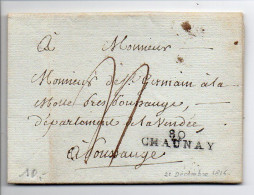 À Monsieur
Monsieur de St. Germain à la
Motte près Pousauge,
département de la Vendée
à Pousauge
80
CHAUNAY
10.-